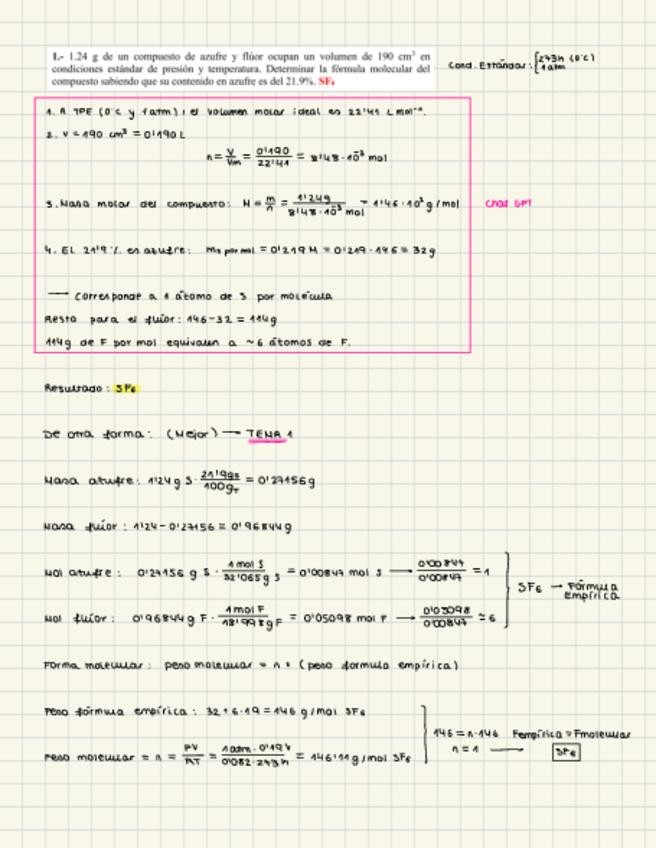 1.- 1.24 g de un compuesto de azufre y flúor ocupan un volumen de 190 cm³ en
condiciones estándar de presión y temperatura. Determinar la fórmula molecular del
compuesto sabiendo que su contenido en azufre es del 21.9%. SF₆
Cond. Estándar: { 273K (0°C)
1 atm
1. A TPE (0°C y 1 atm), el volumen molar ideal es 22'41 L mol⁻¹.
2. V = 190 cm³ = 0'190 L
n = V/Vm = 0'190/22'41 = 8'48·10⁻³ mol
3. Masa molar del compuesto: M = m/n = 1'24g/8'48·10⁻³ mol = 1'46·10² g/mol
Chat GPT
4. EL 21'9 % es azufre: ms por mol = 0'219 M = 0'219·146 = 32g
→ corresponde a 1 átomo de S por molécula
Resta para el flúor: 146-32 = 114g
114g de F por mol equivalen a ~6 átomos de F.
Resultado: SF₆
De otra forma: (Mejor) → TEMA 1
Masa azufre: 1'24 g S · 21'9gs/100gT = 0'27156g
Masa flúor: 1'24 - 0'27156 = 0'96844g
Mol azufre: 0'27156 g S · 1 mol S/32'065g S = 0'00847 mol S → 0'00847/0'00847 = 1
SF₆ → Fórmula
Empírica
Mol flúor: 0'96844g F · 1mol F/18'998gF = 0'05098 mol F → 0'05098/0'00847 ≃ 6
Forma molecular: peso molecular = n · (peso formula empírica)
Peso fórmula empírica: 32+6·19 = 146 g/mol SF₆
146 = n·146 Fempírica = Fmolecular
n = 1 → SF₆
Peso molecular = n = PV/RT = 1atm·0'19L/0'082·273K = 146'11g/mol SF₆